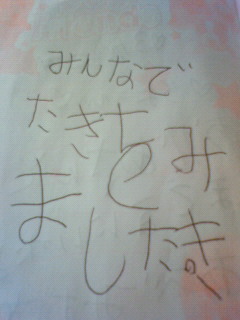 みんなで
たきをみ
ましたき